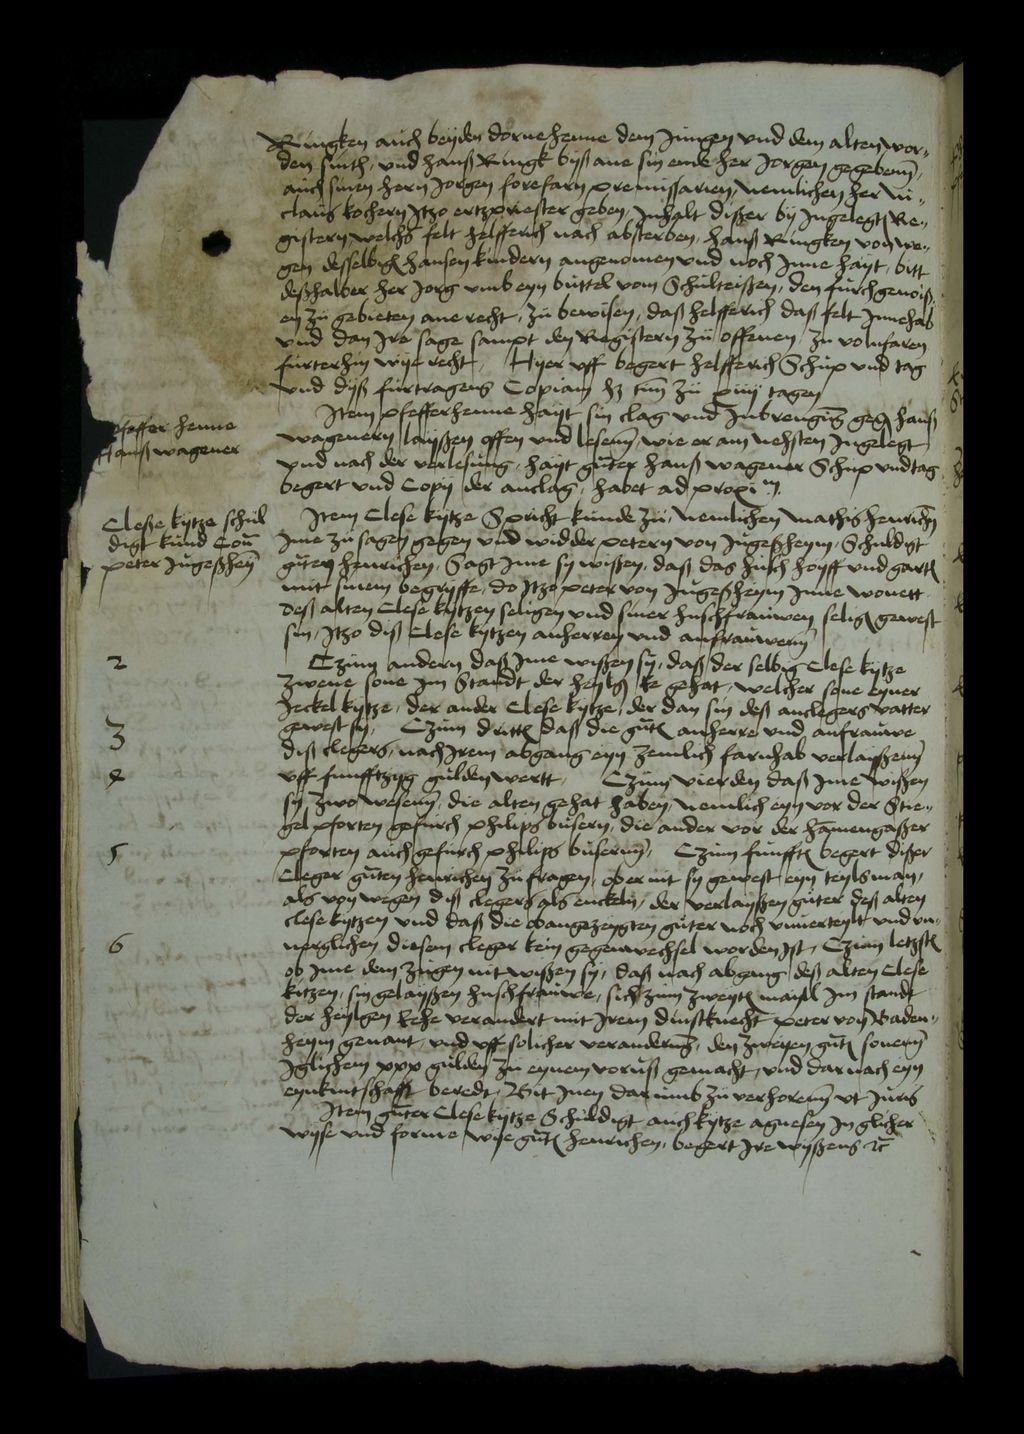 Ringken auch beyden dorrehenne dem Jungen vnd dem alten wor-
den sinth, vnd hanß Ringk byß ane sin ende her Jorgen gegebenn,
auch sinen hern Jorgen forefarn premissarien, nemlichen her Ni-
claus kochern Jtzo ertzpriester geben, Jnhalt dißer by Jngelegtn Re-
gistern welchs felt helfferich nach absterben, hanß Ringken von we-
gen desselbigen hansen kindern angenomen vnd noch Jnne hayt, bitt
deßhalber her Jorg vmb eyn büttel vom Schulteißen, den furchgenoiß
en zu gebieten ane recht, zu bewisen, daß helfferich daß felt Jnnehab
vnd dan Jre sage sampt den Registern zu offenen, zu volnfaren
furterhin wye recht, Hyer vff begert helfferich Schup vnd tag
vnd dyß furtragens Copiam hz tm zu xiiij tagen
Item pfefferhenne hayt sin clag vnd Jnbrengung gegen hanß
wagenern layßen offen vnd lesenn, wie er am nehsten Jngelegt
vnd nach der verlesung, hayt guter hanß wagener Schup vnd tag
begert vnd Copy der anclag, habet ad proxim
pfeffer henne
Hanß wagener
Item Clese kytze Spricht kunde zu, nemlichen Mathis henrichen
Jme zu sagen gegen vnd widder petern von Jugeßheym, Schuldigt
guten henrichen, Sagt Jme sy wisten, daß das husch hoyff vnd garten
mit sinem begryffe, do Jtzo peter von Jugeßheym Jnne wonett
deß alten Clese kytzen seligen vnd siner huschfrauwen seligen gewest
sin, Jtzo diß Clese kytzen anherren vnd anfrauwenn
Cleße kytze schul
digt kund Con
peter Jugeßhen
Czum andern daß Jme wißen sy, daß der selbig Clese kytze
zwene sone Jm Standt der heyligen Ee gehat, welcher sone eyner
Jeckel kytze, der ander Clese kytze, der dan sin deß anclegers vatter
gewest sy, Czum dritten daß die guten anherre vnd anfrauwe
diß clegers, nach Jrem abgang eyn zemlich farnhab verlayßenn
vff funfftzyg gulden wertt, Czum vierden daß Jme wißen
sy zwo wesenn, die alten gehat haben, nemlich eyn vor der Stie-
gel pforten gefurch philips busern, die ander vor der hamengaßer
pforten auch gefurch philips buserenn, Czum funfften begert dißer
Cleger guten henrichen zu fragen, ob er nit sy gewest eyn teylsman,
als von wegen diß clegers als enckeln, der verlayßen guter deß alten
clese kytzen vnd daß die obangezeygten guter noch vnuerteylt vnd vn-
uerglichen diesem cleger kein gegenwechsel worden Jst, Czum letzsten
ob Jme dem zugen nit wißen sy, daß nach abgang deß alten Clese
kitzen, sin gelayßen huschfrauwe, sich zum zweyten mayll Jm standt
der heylgen Eehe verandert mit Jrem dinstknecht peter von Baden-
heym genant, vnd vff solicher veranderung, den zweyen guten sonenn
Jglichem xxx gulden zu eynem voruß gemacht, vnd dar nach eyn
eynkintschafft beredt, Bit Jnen dar umb zu verhorenn vt Juris
2
3
4
5
6
Item guter Clese kytze Schuldigt auch kytze agnesen Jn glicher
wyse vnd forme wise guten henrichen, begert Jre wyßens etc